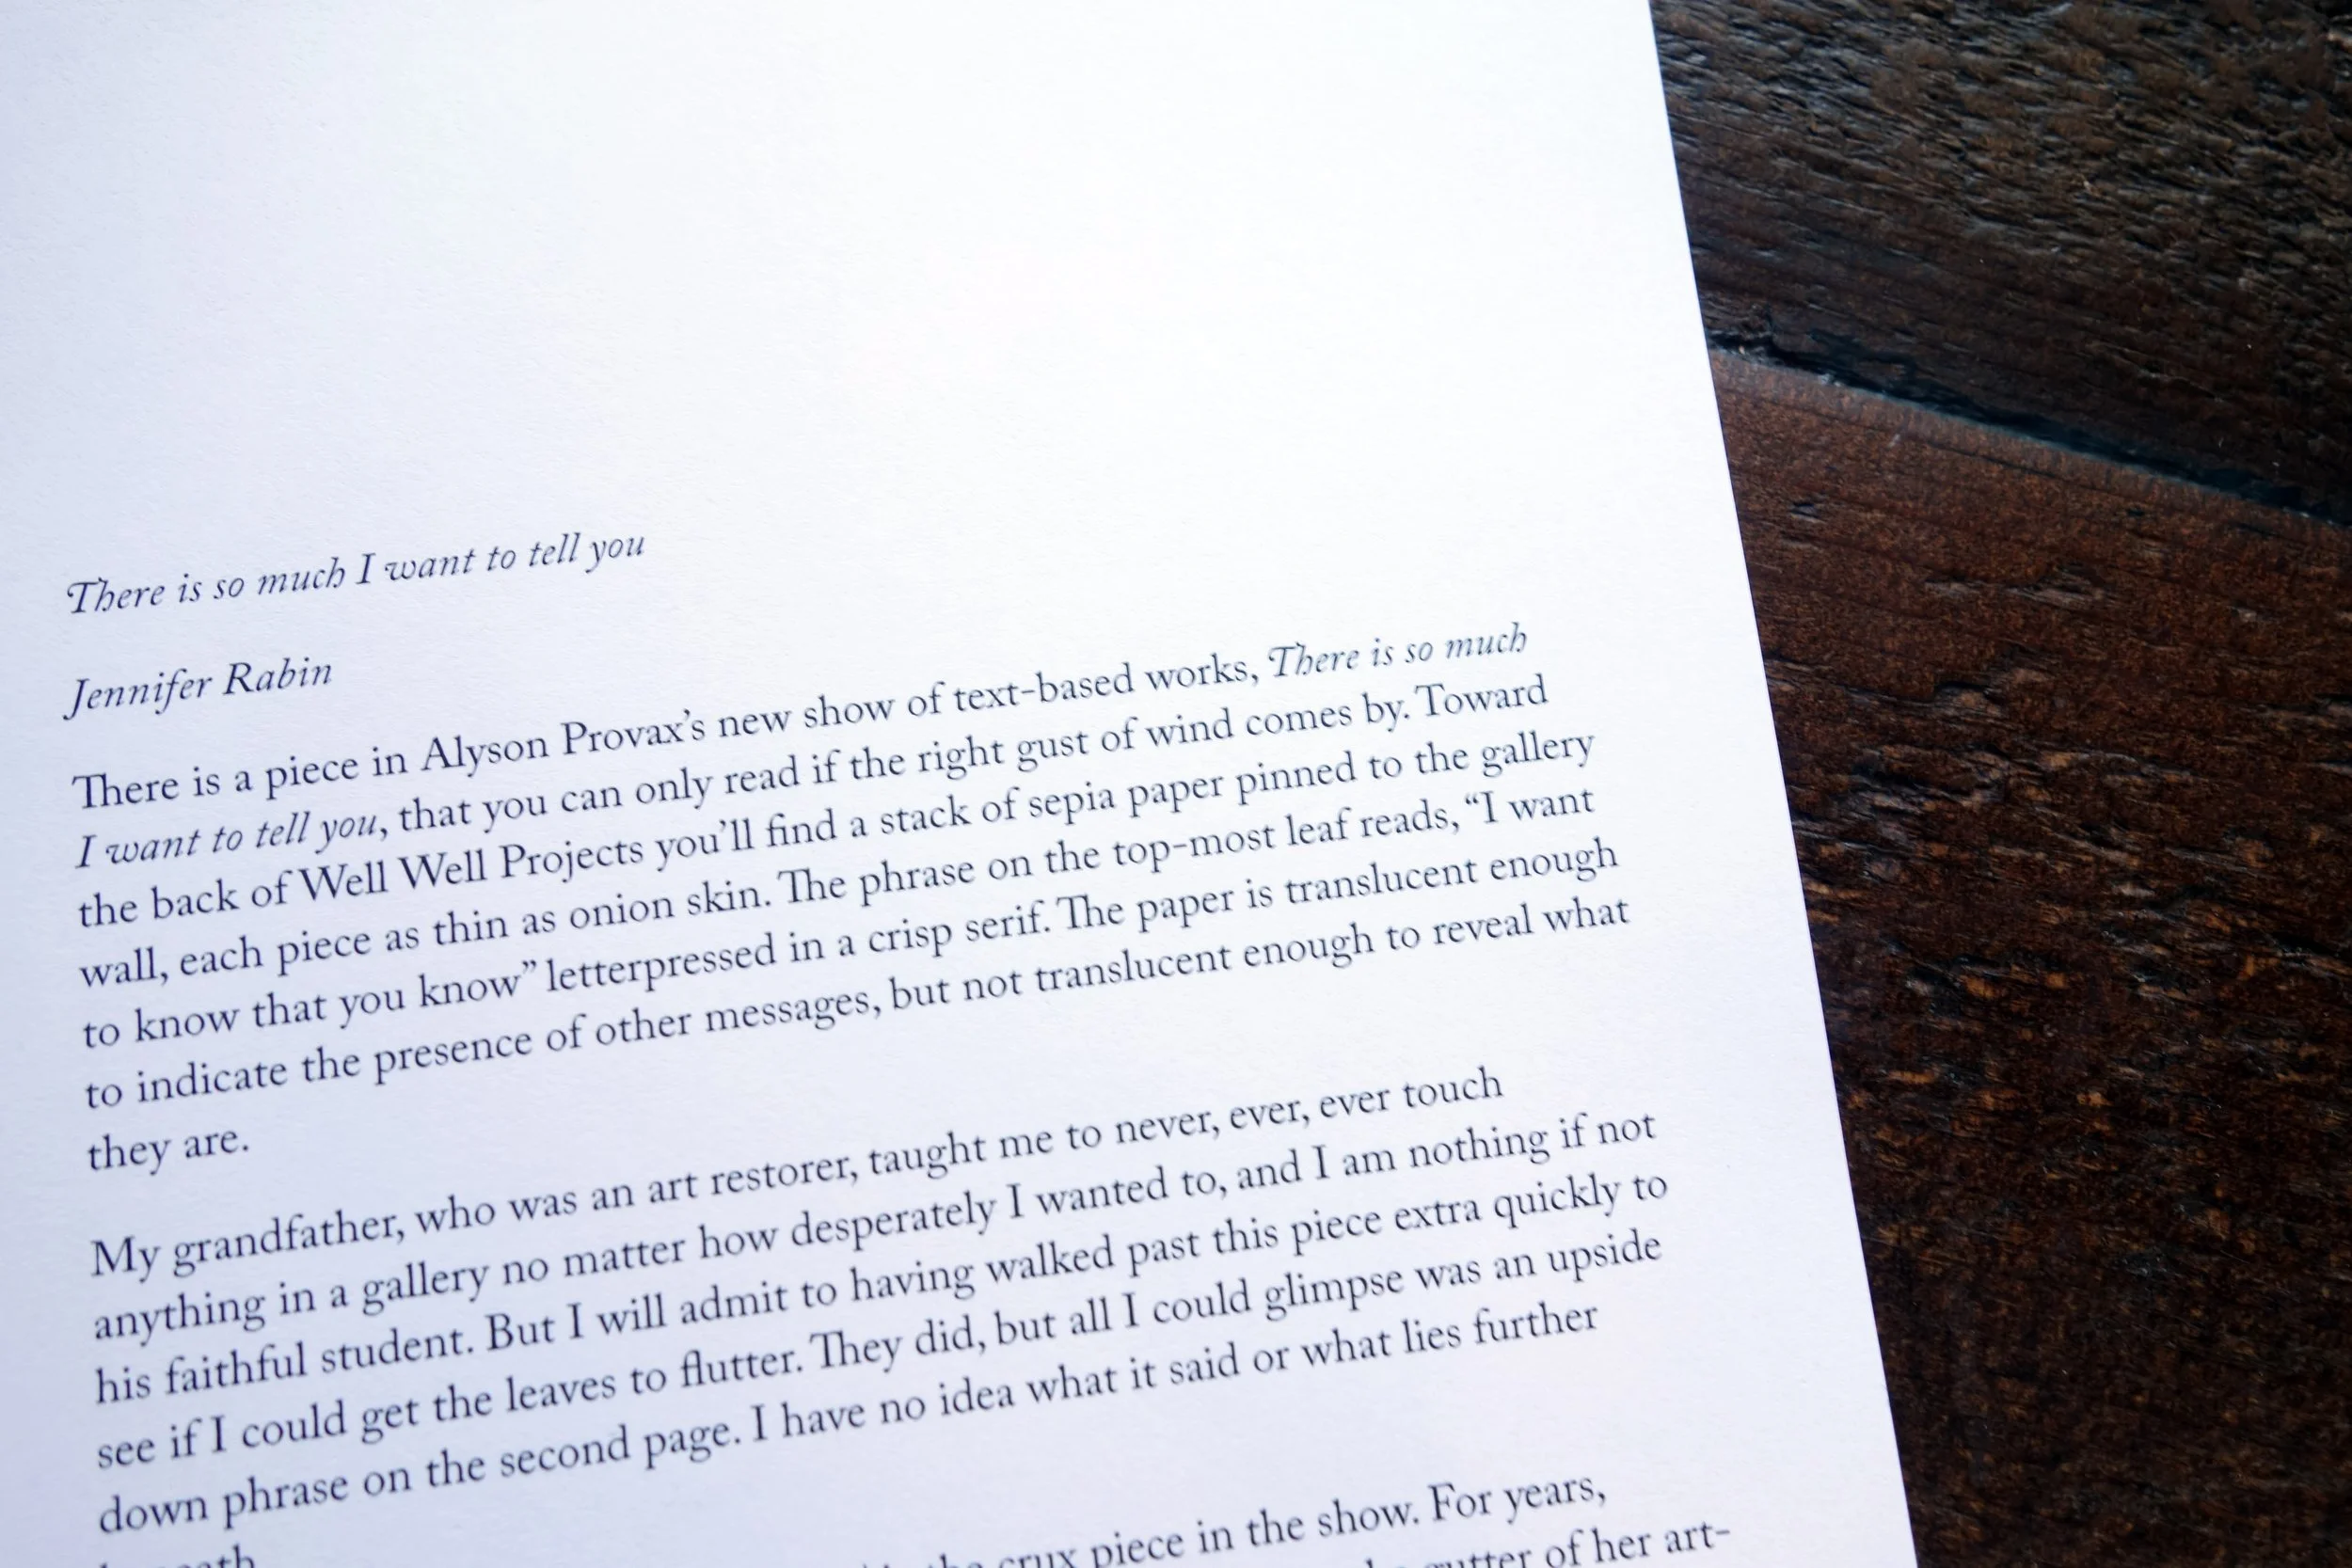 There is so much I want to tell you
Jennifer Rabin
There is a piece in Alyson Provax’s new show of text-based works, There is so much
I want to tell you, that you can only read if the right gust of wind comes by. Toward
the back of Well Well Projects you’ll find a stack of sepia paper pinned to the gallery
wall, each piece as thin as onion skin. The phrase on the top-most leaf reads, “I want
to know that you know” letterpressed in a crisp serif. The paper is translucent enough
to indicate the presence of other messages, but not translucent enough to reveal what
they are.
My grandfather, who was an art restorer, taught me to never, ever, ever touch
anything in a gallery no matter how desperately I wanted to, and I am nothing if not
his faithful student. But I will admit to having walked past this piece extra quickly to
see if I could get the leaves to flutter. They did, but all I could glimpse was an upside
down phrase on the second page. I have no idea what it said or what lies further
the crux piece in the show. For years,
gutter of her art-